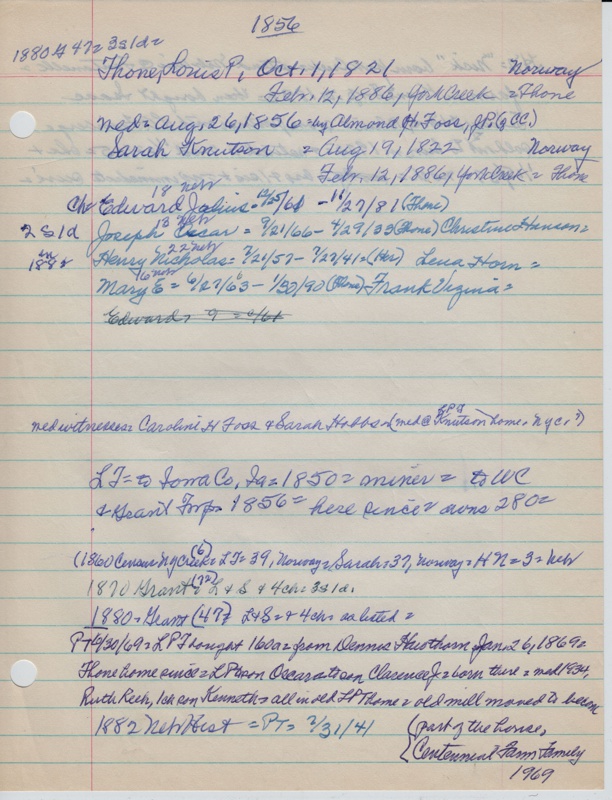 1856
1880 G 47= 3s1d=
Thone, Louis P, Oct. 1, 1821 Norway
Feb. 12, 1886, York Creek = Thone
med= Aug. 26, 1856 = by Almond H. Foss, J.P. G CC.)
Sarah Knutson = Aug 19, 1822 Norway
Feb. 12, 1886, York Creek = Thone
18 Neb
Ch= Edward Julius= 12/25/61 - 11/27/81 (Thone)
13 Neb
2 s 1 d Joseph Oscar = 9/21/66 - 4/29/33 (Thone) Christine Hanson=
in 1882
22 Neb
Henry Nicholas= 7/21/57 - 7/27/41= (Her) Lena Horn=
16 Neb
Mary E = 6/27/63 - 1/30/90 (Thone) Frank Virginia=
Edward,
med witnesses= Caroline H Foss & Sarah Hobbs (med @ Knutson home, NYC, ?)
LT= to Iowa Co, Ia = 1850 = miner = to WC
& Grant Twp = 1856 = here since= owns 280=
(1860 Census= NYCreek (6) = LT= 39, Norway= Sarah= 37, Norway= HN= 3= Neb
1870 Grant (72) = L & S & 4ch= 3s1d.
1880= Grant (47)= L&S= & 4ch= as listed=
PT 9/30/69= LP T bought 160a= from Dennis Hawthorn Jan. 26, 1869=
Thone home since= LP son Oscar to son Clarence J= born there= med 1934,
Ruth Reek, 1ch son Kenneth= all in old LP Thone= old mill moved to become
1882 Neb Hist = PT= 7/31/41 (part of the house,
Centennial Farm Family
1969